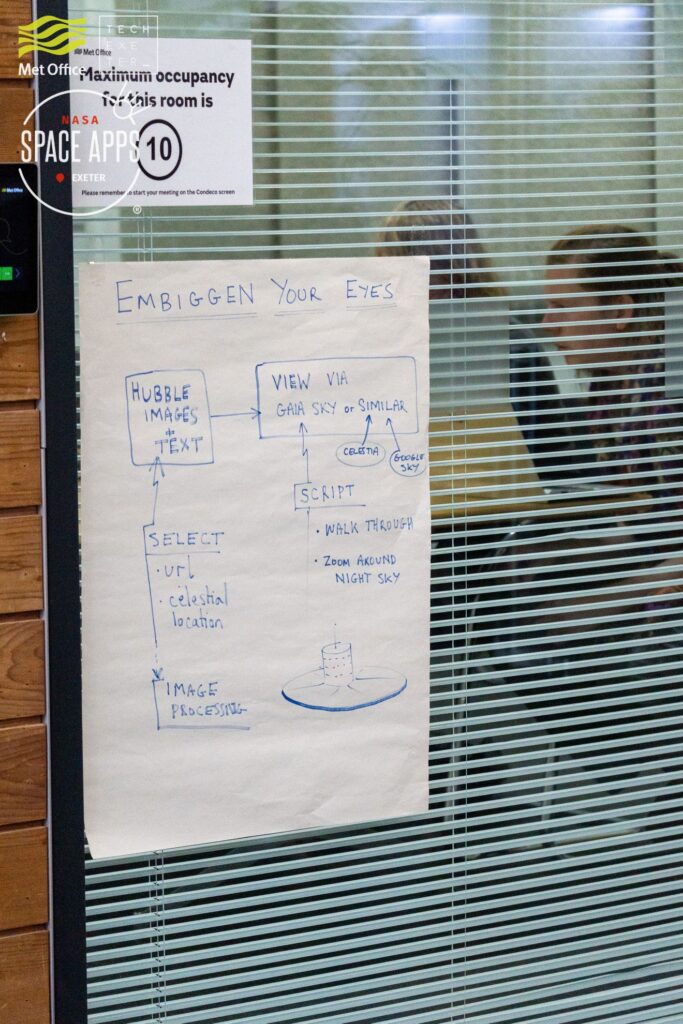 Met Office
TECH
EXE
TER
Met Office
Maximum occupancy
for this room is
10
Please remember to start your meeting on the Condeco screen
NASA
SPACE APPS
EXETER
®
EMBIGGEN YOUR EYES
HUBBLE
IMAGES
+
TEXT
VIEW VIA
GAIA SKY or SIMILAR
CELESTIA
GOOGLE
SKY
SCRIPT
• WALK THROUGH
• ZOOM AROUND
NIGHT SKY
SELECT
• url
• celestial
location
IMAGE
PROCESSING